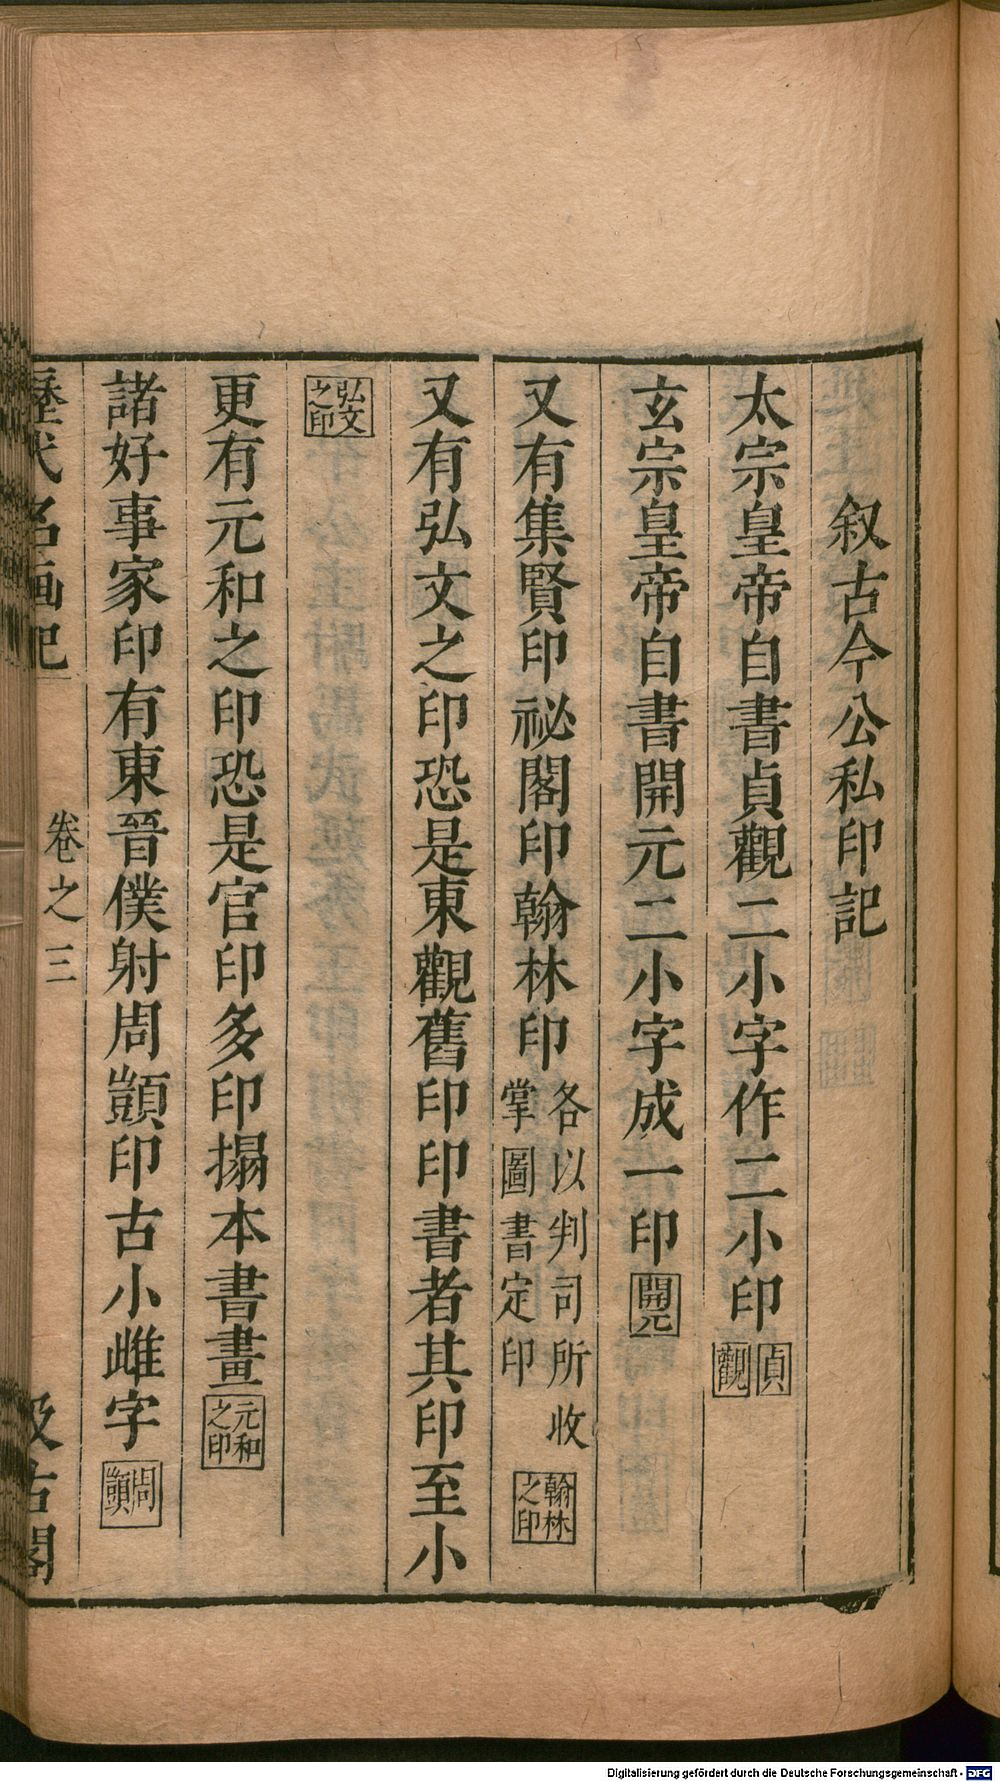 叙古今公私印記
太宗皇帝自書貞觀二小字作二小印貞觀
玄宗皇帝自書開元二小字成一印開元
又有集賢印祕閣印翰林印各以判司所收掌圖書定印翰林之印
又有弘文之印恐是東觀舊印印書者其印至小
弘文之印
更有元和之印恐是官印多印搨本書畫元和之印
諸好事家印有東晉僕射周顗印古小雌字周顗
歷代名画記 卷之三 汲古閣
Digitalisierung gefördert durch die Deutsche Forschungsgemeinschaft - DFG